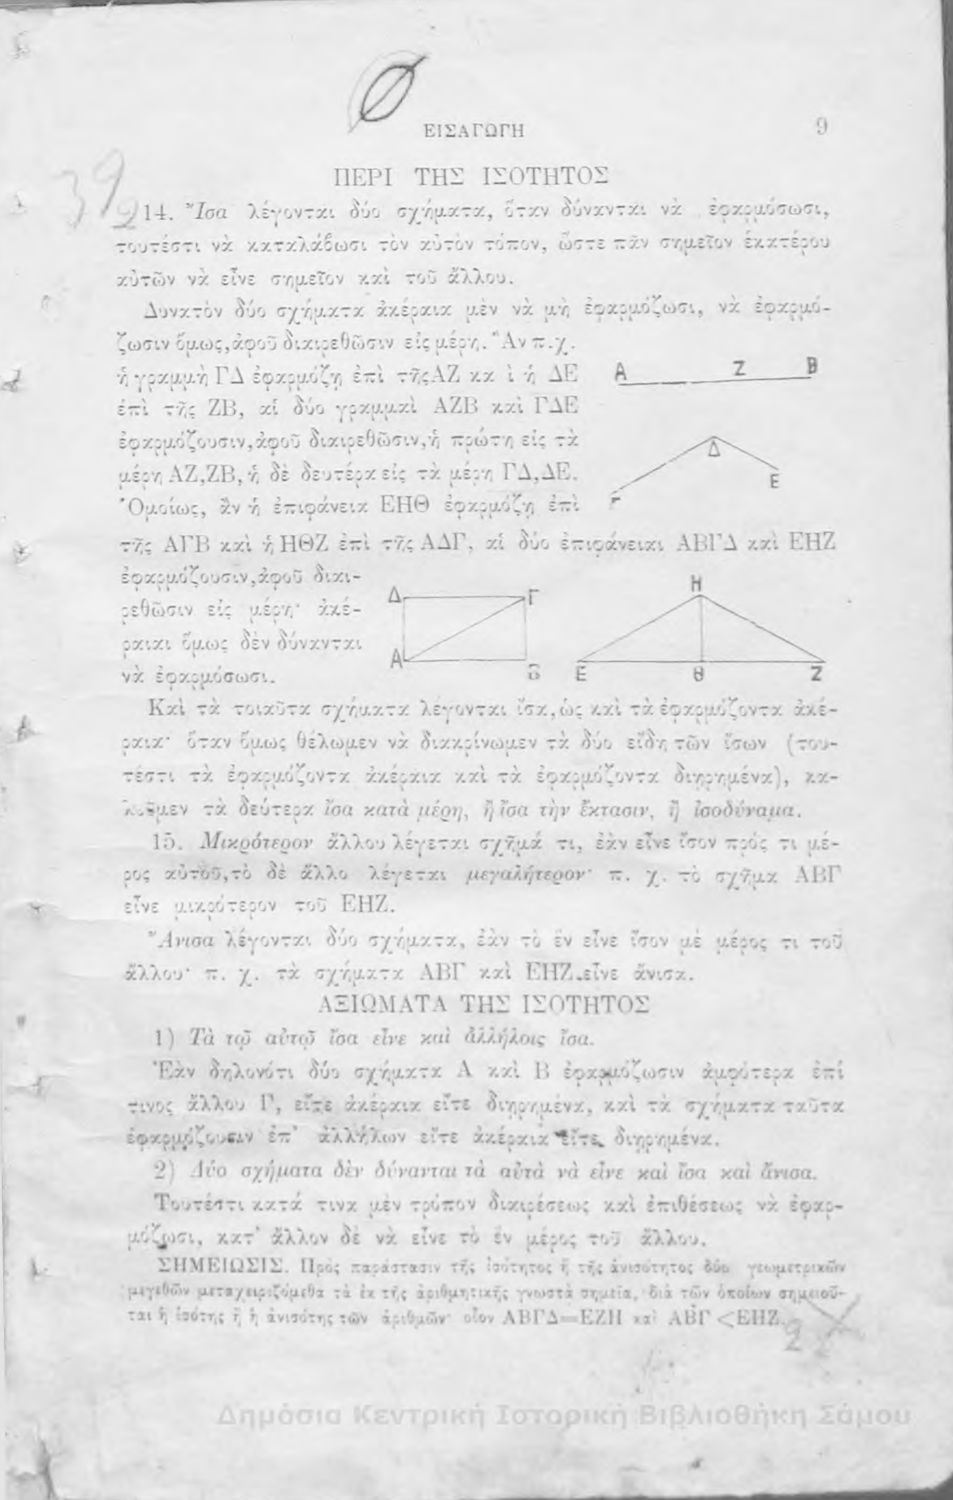 ΕΙΣΑΓΩΓΗ
9
39
ΠΕΡΙ ΤΗΣ ΙΣΟΤΗΤΟΣ
14. Ἴσα λέγονται δύο σχήματα, ὅταν δύνανται νὰ ἐφαρμόσωσι,
τουτέστι νὰ καταλάβωσι τὸν αὐτὸν τόπον, ὥστε πᾶν σημεῖον ἑκατέρου
αὐτῶν νὰ εἶνε σημεῖον καὶ τοῦ ἄλλου.
Δυνατὸν δύο σχήματα ἀκέραια μὲν νὰ μὴ ἐφαρμόζωσι, νὰ ἐφαρμό-
ζωσιν ὅμως, ἀφοῦ διαιρεθῶσιν εἰς μέρη. Ἂν π. χ.
ἡ γραμμὴ ΓΔ ἐφαρμόζῃ ἐπὶ τῆς ΑΖ κα ὶ ἡ ΔΕ
ἐπὶ τῆς ΖΒ, αἱ δύο γραμμαὶ ΑΖΒ καὶ ΓΔΕ
ἐφαρμόζουσιν, ἀφοῦ διαιρεθῶσιν, ἡ πρώτη εἰς τὰ
μέρη ΑΖ, ΖΒ, ἡ δὲ δευτέρα εἰς τὰ μέρη ΓΔ, ΔΕ.
Ὁμοίως, ἂν ἡ ἐπιφάνεια ΕΗΘ ἐφαρμόζῃ ἐπὶ
Α Ζ Β
Δ
Γ Ε
τῆς ΑΓΒ καὶ ἡ ΗΘΖ ἐπὶ τῆς ΑΔΓ, αἱ δύο ἐπιφάνειαι ΑΒΓΔ καὶ ΕΗΖ
ἐφαρμόζουσιν, ἀφοῦ διαι-
ρεθῶσιν εἰς μέρη· ἀκέ-
ραιαι ὅμως δὲν δύνανται
νὰ ἐφαρμόσωσι.
Δ Γ Η
Α
Β Ε Θ Ζ
Καὶ τὰ τοιαῦτα σχήματα λέγονται ἴσα, ὡς καὶ τὰ ἐφαρμόζοντα ἀκέ-
ραια· ὅταν ὅμως θέλωμεν νὰ διακρίνωμεν τὰ δύο εἴδη τῶν ἴσων (του-
τέστι τὰ ἐφαρμόζοντα ἀκέραια καὶ τὰ ἐφαρμόζοντα διῃρημένα), κα-
λοῦμεν τὰ δεύτερα ἴσα κατὰ μέρη, ἢ ἴσα τὴν ἔκτασιν, ἢ ἰσοδύναμα.
15. Μικρότερον ἄλλου λέγεται σχῆμά τι, ἐὰν εἶνε ἴσον πρός τι μέ-
ρος αὐτοῦ, τὸ δὲ ἄλλο λέγεται μεγαλήτερον· π. χ. τὸ σχῆμα ΑΒΓ
εἶνε μικρότερον τοῦ ΕΗΖ.
Ἄνισα λέγονται δύο σχήματα, ἐὰν τὸ ἓν εἶνε ἴσον μὲ μέρος τι τοῦ
ἄλλου· π. χ. τὰ σχήματα ΑΒΓ καὶ ΕΗΖ εἶνε ἄνισα.
ΑΞΙΩΜΑΤΑ ΤΗΣ ΙΣΟΤΗΤΟΣ
1) Τὰ τῷ αὐτῷ ἴσα εἶνε καὶ ἀλλήλοις ἴσα.
Ἐὰν δηλονότι δύο σχήματα Α καὶ Β ἐφαρμόζωσιν ἀμφότερα ἐπί
τινος ἄλλου Γ, εἴτε ἀκέραια εἴτε διῃρημένα, καὶ τὰ σχήματα ταῦτα
ἐφαρμόζουσιν ἐπ' ἀλλήλων εἴτε ἀκέραια εἴτε διῃρημένα.
2) Δύο σχήματα δὲν δύνανται τὰ αὐτὰ νὰ εἶνε καὶ ἴσα καὶ ἄνισα.
Τουτέστι κατά τινα μὲν τρόπον διαιρέσεως καὶ ἐπιθέσεως νὰ ἐφαρ-
μόζωσι, κατ' ἄλλον δὲ νὰ εἶνε τὸ ἓν μέρος τοῦ ἄλλου.
ΣΗΜΕΙΩΣΙΣ. Πρὸς παράστασιν τῆς ἰσότητος ἢ τῆς ἀνισότητος δύο γεωμετρικῶν
μεγεθῶν μεταχειριζόμεθα τὰ ἐκ τῆς ἀριθμητικῆς γνωστὰ σημεῖα, διὰ τῶν ὁποίων σημειοῦ-
ται ἡ ἰσότης ἢ ἡ ἀνισότης τῶν ἀριθμῶν· οἷον ΑΒΓΔ=ΕΖΗ καὶ ΑΒΓ<ΕΗΖ.
Δημόσια Κεντρική Ιστορική Βιβλιοθήκη Σάμου